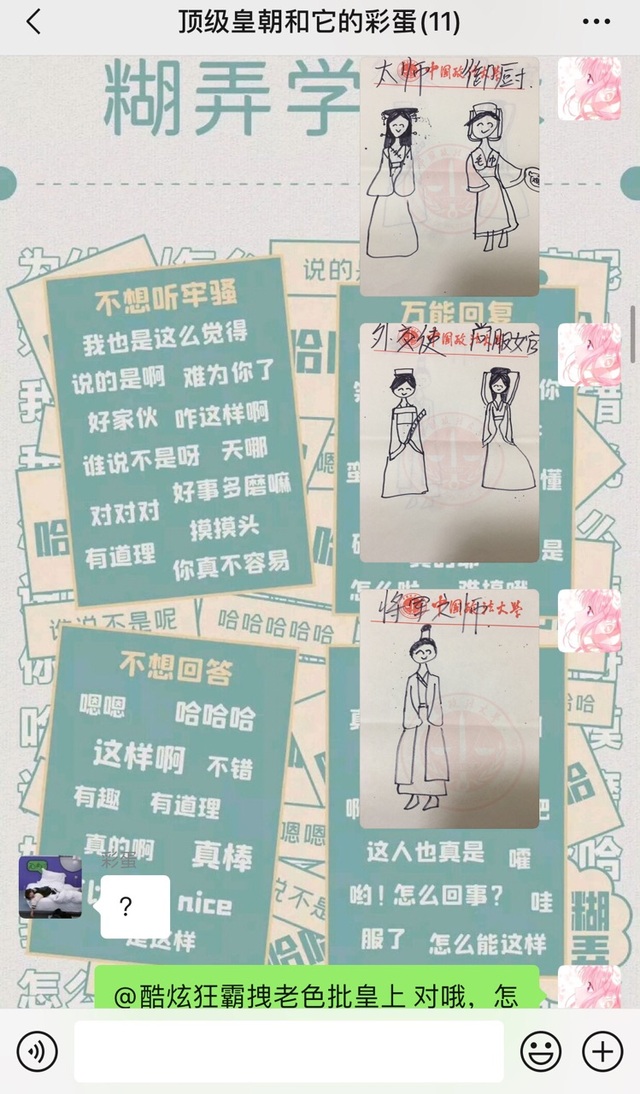 顶级皇朝和它的彩蛋(11)
糊弄学
太师 御厨
中国政法大学
说的是
不想听牢骚
我也是这么觉得
说的是啊 难为你了
好家伙 咋这样啊
谁说不是呀 天哪
对对对 好事多磨嘛
摸摸头
有道理 你真不容易
万能回复
外交使 尚服女官
中国政法大学
你
懂
是
怎么啦 难搞哦
谁说不是呢
哈哈哈哈哈
将军 史师
中国政法大学
不想回答
嗯嗯 哈哈哈
这样啊 不错
有趣 有道理
真的啊 真棒
nice
是这样
这人也真是 嚯
哟！怎么回事？ 哇
服了 怎么能这样
糊弄
彩蛋
？
@酷炫狂霸拽老色批皇上 对哦，怎